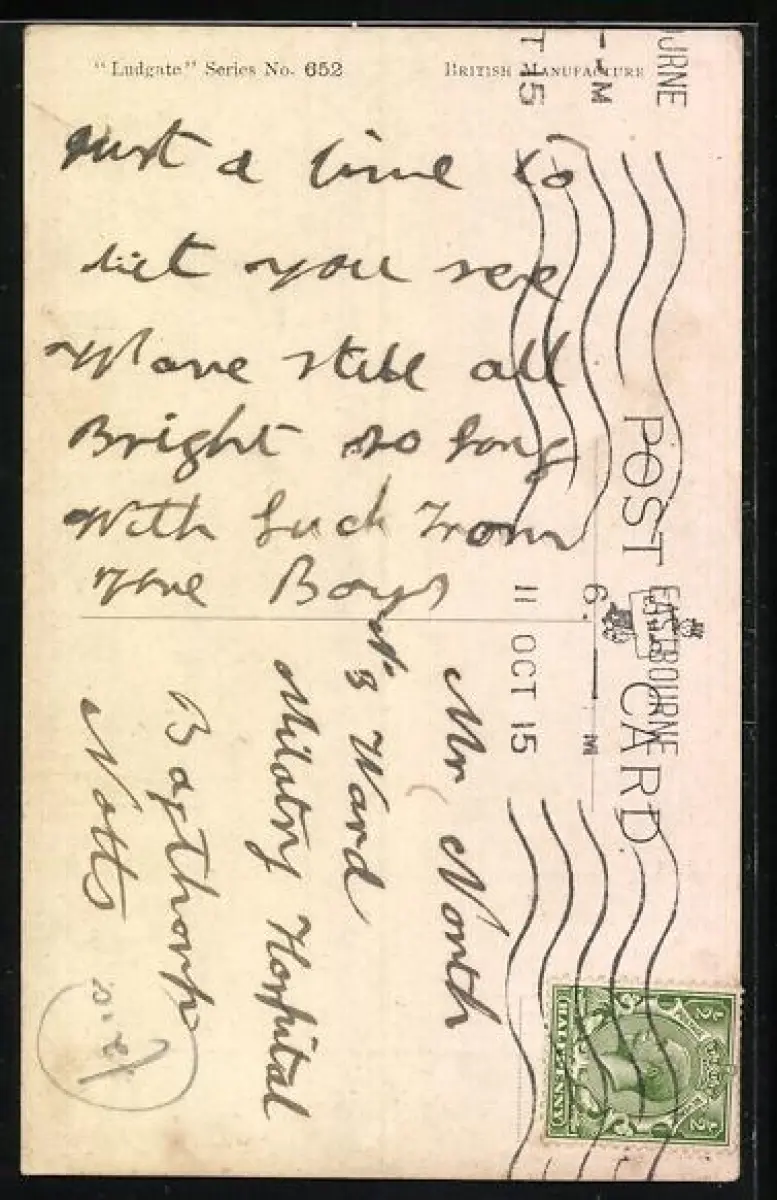 "Ludgate" Series No. 652
BRITISH MANUFACTURE
Just a line to
let you see
We are still all
Bright so long
With Luck From
The Boys
POST CARD
EASTBOURNE
6. — M
11 OCT 15
OURNE
— M
T 15
Mr North
No 3 Ward
Military Hospital
Bagthorp
Notts
HALFPENNY
½
½